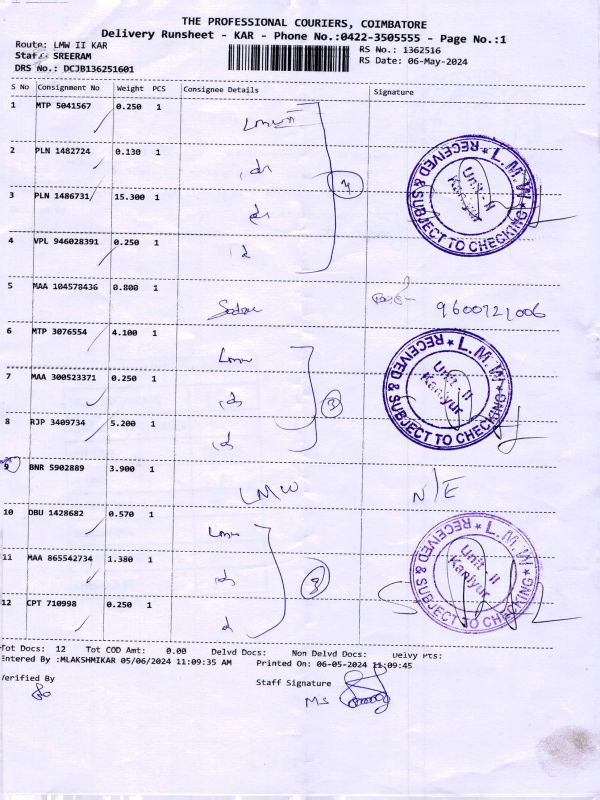 THE PROFESSIONAL COURIERS, COIMBATORE
Delivery Runsheet - KAR - Phone No.:0422-3505555 - Page No.:1
Route: LMW II KAR
RS No.: 1362516
Staff: SREERAM
RS Date: 06-May-2024
DRS No.: DCJB136251601
S No Consignment No Weight PCS Consignee Details Signature
1 MTP 5041567 0.250 1
2 PLN 1482724 0.130 1
3 PLN 1486731 15.300 1
4 VPL 946028391 0.250 1
L.M.W
RECEIVED & SUBJECT TO CHECKING
Unit - II
Kaniyur
5 MAA 104578436 0.800 1 9600721006
6 MTP 3076554 4.100 1 Lmw
7 MAA 300523371 0.250 1
8 RJP 3409734 5.200 1
L.M.W
RECEIVED & SUBJECT TO CHECKING
Unit - II
Kaniyur
9 BNR 5902889 3.900 1 LMW N/E
10 DBU 1428682 0.570 1 Lmw
11 MAA 865542734 1.380 1
12 CPT 710998 0.250 1
L.M.W
RECEIVED & SUBJECT TO CHECKING
Unit - II
Kaniyur
Tot Docs: 12 Tot COD Amt: 0.00 Delvd Docs: Non Delvd Docs: Delvy Pcs:
Entered By :MLAKSHMIKAR 05/06/2024 11:09:35 AM Printed On: 06-05-2024 11:09:45
Verified By
Staff Signature
Ms